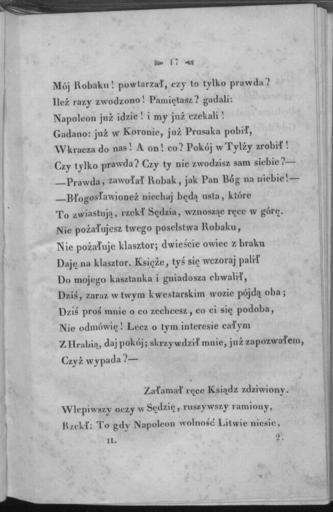 17
Mój Robaku! powtarzał, czy to tylko prawda?
Ileż razy zwodzono! Pamiętasz? gadali:
Napoleon już idzie! i my już czekali!
Gadano: już w Koronie, już Prusaka pobił,
Wkracza do nas! A on! co? Pokój w Tylży zrobił!
Czy tylko prawda? Czy ty nie zwodzisz sam siebie?—
—Prawda, zawołał Robak, jak Pan Bóg na niebie!—
—Błogosławioneż niechaj będą usta, które
To zwiastują, rzekł Sędzia, wznosząc ręce w górę.
Nie pożałujesz twego poselstwa Robaku,
Nie pożałuje klasztor; dwieście owiec z braku
Daję na klasztor. Księże, tyś się wczoraj palił
Do mojego kasztanka i gniadosza chwalił,
Dziś, zaraz w twym kwestarskim wozie pójdą oba;
Dziś proś mnie o co zechcesz, co ci się podoba,
Nie odmówię! Lecz o tym interesie całym
Z Hrabią, daj pokój; skrzywdził mnie, już zapozwałem,
Czyż wypada?—
Załamał ręce Ksiądz zdziwiony.
Wlepiwszy oczy w Sędzię, ruszywszy ramiony,
Rzekł: To gdy Napoleon wolność Litwie niesie,
II. 2.